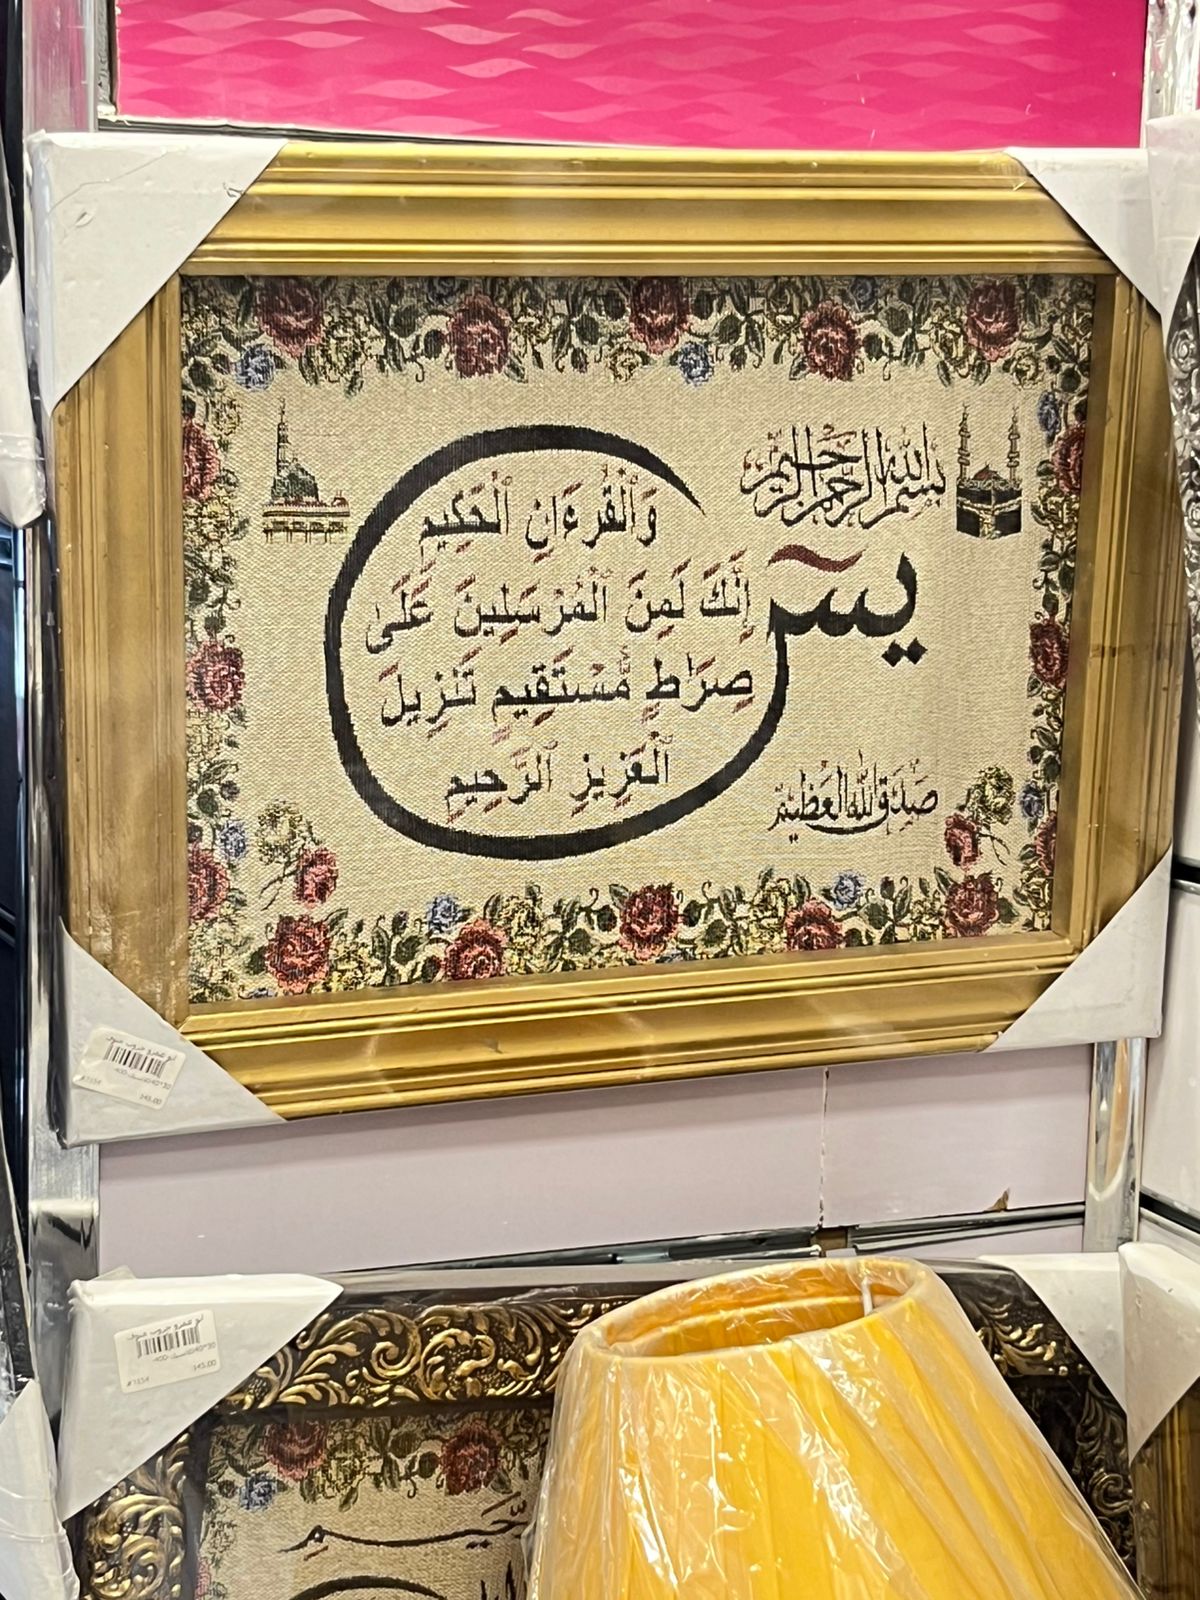 بسم الله الرحمن الرحيم
يسٓ
وَٱلْقُرْءَانِ ٱلْحَكِيمِ
إِنَّكَ لَمِنَ ٱلْمُرْسَلِينَ عَلَىٰ
صِرَٰطٍ مُّسْتَقِيمٍ تَنْزِيلَ
ٱلْعَزِيزِ ٱلرَّحِيمِ
صدق الله العظيم
400
#7354
145.00
400
#7354
145.00